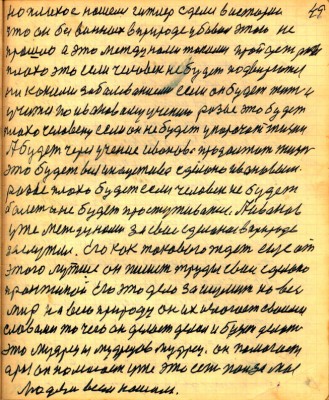 49
но плохое нашем Гитлер сделал в истории
что он без винных в природе убивал этого не
прошло а это между нами такими пройдет
плохо это если человек не будет подвергаться
никаким заболеваниям если он будет жить и
учится по ивановому учению разве это будет
плохо человеку если он не будет упрочат жизни
А будет через учение иванова продолжать жизнь
это будет вот и
разве плохо будет если человек не будет
болеть и не будет простуживаться. А иванов
уже между нами за свое сделаное в природе
заслужил. Его как такового ждет еще от
этого лучшие он пишет труды свои сделано
практикой Его это дело защищать на весь
мир на всю природу он их своими
словами то чего он делает делал и будет делать
это мудрец мудрецов мудрец. он помогать
он помогает уже это есть
Людям всем нашим.